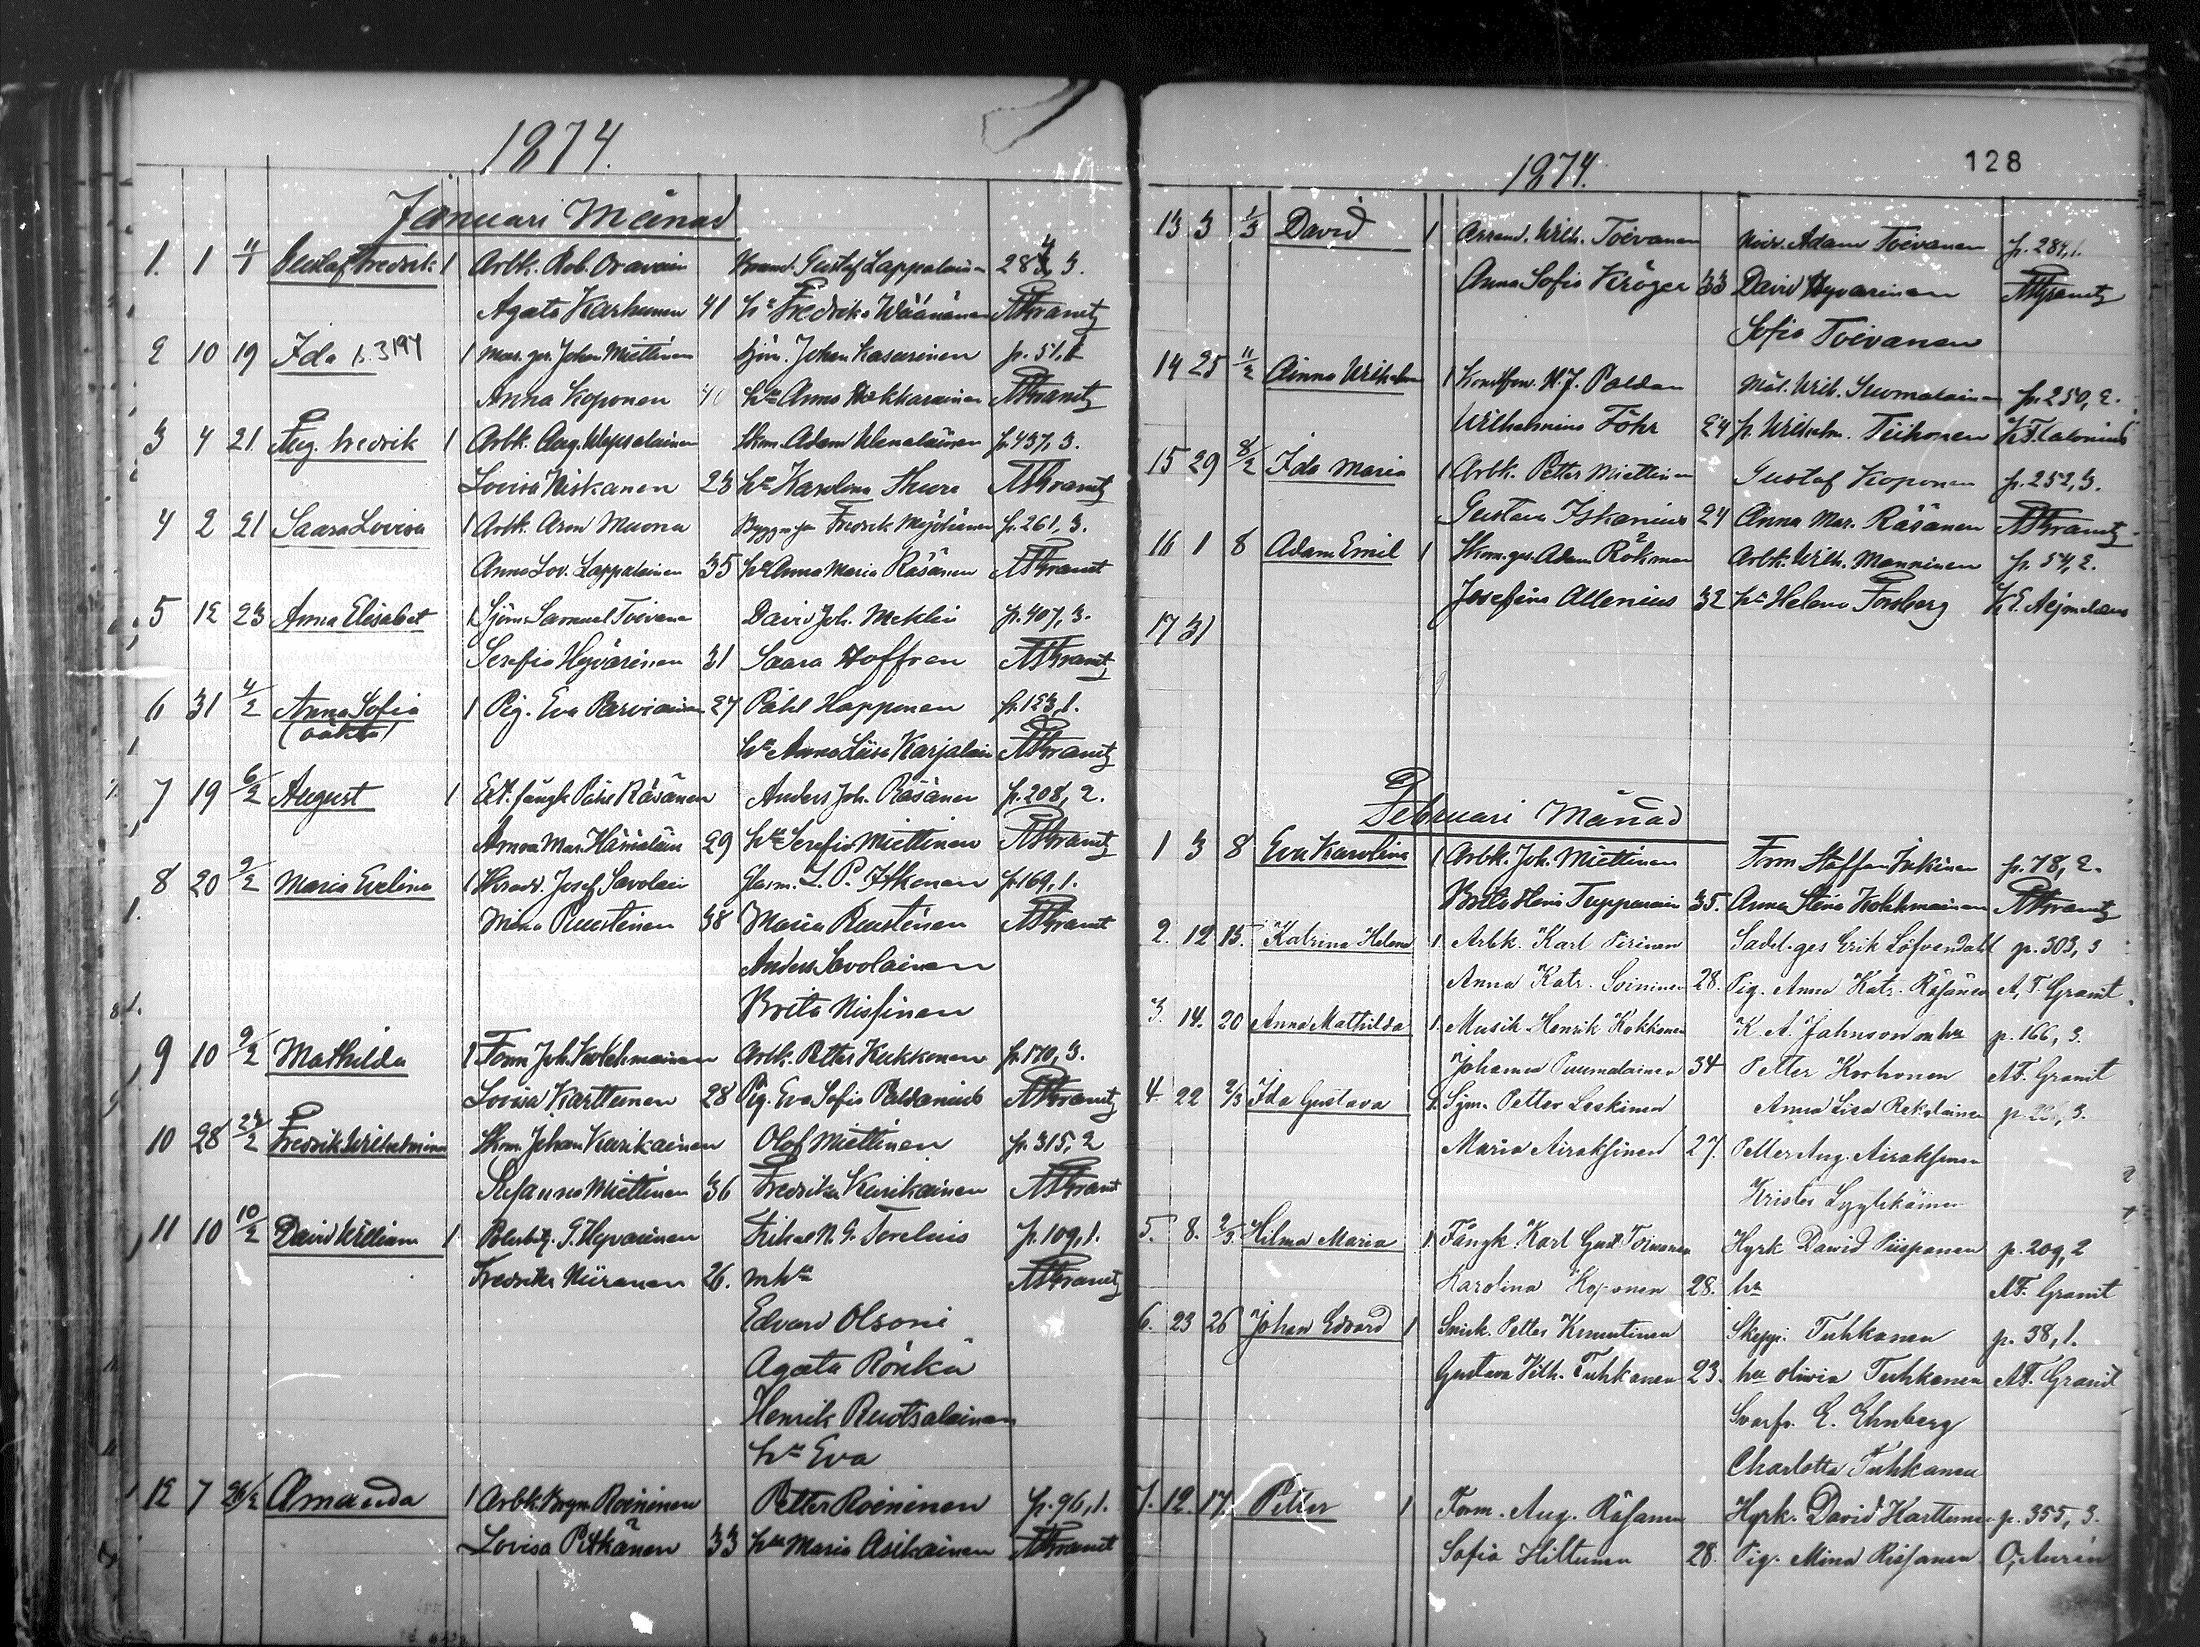 1874.
Januari Månad
1. 1 11/1 Gustaf Fredrik 1 Arbk. Rob. Oravain Gustaf Lappalainen 284, 3.
Agata Karhunen 41 hu Fredrika Väänänen
2 10 19 Ida 1 Johan Miettinen sjöm. Johan Kasurinen p. 51, 1
Anna Koponen 40 hu Anna AFGranit
3 4 21 Aug. Fredrik 1 Arbk. Aug. Wepsalainen Skom. Adam Wenalainen p. 437, 3.
Lovisa Niskanen 23 hu Karolina Thure AFGranit
4 2 21 Saara Lovisa 1 Arbk. Aron Muona Fredrik p. 261, 3.
Anna Lov. Lappalainen 35 hu Anna Maria Räsänen AFGranit
5 12 23 Anna Elisabet 1 Sjöm. Samuel Toivanen David Joh. Meklin p. 407, 3.
Serafia Hyvärinen 31 Saara Hoffren AFGranit
6 31 4/2 Anna Sofia 1 Pig. Eva Parviainen 27 Påhl Happonen p. 123, 1.
(oäkta) hu Anna Liisa Karjalain AFGranit
7 19 6/2 August 1 Ext. fångk Påhl Räsänen Anders Joh. Räsänen p. 208, 2.
Anna Mar. Hämäläin 29 hu Serafia Miettinen AFGranit
8 20 9/2 Maria Evelina 1 Skrädd. Josef Savolain Glasm. L. P. Itkonen p. 169, 1.
Mina Puustinen 38 Maria Puustinen AFGranit
Anders Savolainen
Brita Nissinen
9 10 9/2 Mathilda 1 Form Joh. Kolehmainen Arbk. Petter Kukkonen p. 170, 3.
Lovisa Karttunen 28 Pig. Eva Sofia Paldanius AFGranit
10 28 24/2 Fredrik Wilhelmina Skom. Johan Kurikainen Olof Miettinen p. 315, 2
Miettinen 36 Fredrika Kurikainen AFGranit
11 10 10/2 David William 1 G. Hyvärinen N. G. Torelius p. 109, 1.
Fredrika Niiranen 26. m hu AFGranit
Edvard Olsoni
Agata Rönkä
Henrik Ruotsalainen
hu Eva
12 7 26/2 Amanda 1 Arbk. Roininen Petter Roininen p. 96, 1.
Lovisa Pitkänen 33 hu Maria Asikainen AFGranit
1874. 128
13 3 1/3 David 1 Arrend. Wilh. Toivanen Adam Toivanen p. 284, 1.
Anna Sofia Kröger 33 David Hyvärinen AFGranit
Sofia Toivanen
14 25 11/2 Wilhelm 1 H. J. Paldan Mål. Wilh. Suomalainen p. 250, 2.
Wilhelmina Föhr 24 p. Wilhelm. Tiihonen
15 29 8/2 Ida Maria 1 Arbk. Petter Miettinen Gustaf Koponen p. 252, 3.
Gustava Iskanius 24 Anna Mar. Räsänen AFGranit
16 1 8 Adam Emil 1 Skom.ges. Adam Rökman Arbk. Wilh. Manninen p. 54, 2.
Josefina Allenius 32 hu Helena Forsberg
17 31
Februari Månad
1 3 8 Eva Karolina 1 Arbk. Joh. Miettinen Form Staffan p. 78, 2.
Brita Tuppurain 35. Anna Stina Kolehmainen AFGranit
2. 12 15. Katrina Helena 1. Arbk. Karl Pirinen Sadl.ges Erik Löfvendall p. 303, 3
Anna Katr. Soininen 28. Pig. Anna Katr. Räsänen A. F. Granit
3. 14. 20 Anna Mathilda 1. Musik. Henrik Kokkonen K. A. Jahnsson m hu p. 166, 3.
Johanna Puumalainen 34 Petter Korhonen AF. Granit
4 22 2/3 Ida Gustava 1. Sjm. Petter Leskinen Anna Lisa Rekolainen
Maria Airaksinen 27. Petter Aug. Airaksinen
Krister Lyytikäinen
5. 8. 2/3 Hilma Maria 1. Fångk. Karl Gust Toivanen Hyrk David Piispanen p. 209, 2
Karolina Koponen 28. hu AF. Granit
6. 23 26 Johan Edvard 1 Snick. Petter Knuutinen Skepp. Tuhkanen p. 38, 1.
Gustava Vilh. Tuhkanen 23. hu Olivia Tuhkanen AF. Granit
Svarfv. E. Ehnberg
Charlotta Tuhkanen
7. 12. 17. Petter 1 Form. Aug. Räsänen Hyrk. David Karttunen p. 355, 3.
Sofia Hiltunen 28. Pig. Mina Räsänen